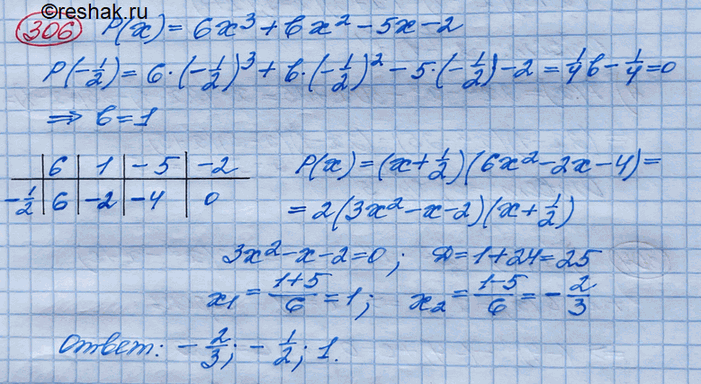 ©reshak.ru
306 P(x) = 6x³ + bx² - 5x - 2
P(-1/2) = 6·(-1/2)³ + b·(-1/2)² - 5·(-1/2) - 2 = 1/4 b - 1/4 = 0
⇒ b = 1
6 | 1 | -5 | -2
-1/2 | 6 | -2 | -4 | 0
P(x) = (x + 1/2)(6x² - 2x - 4) =
= 2(3x² - x - 2)(x + 1/2)
3x² - x - 2 = 0; D = 1 + 24 = 25
x₁ = (1+5)/6 = 1; x₂ = (1-5)/6 = -2/3
Ответ: -2/3; -1/2; 1.